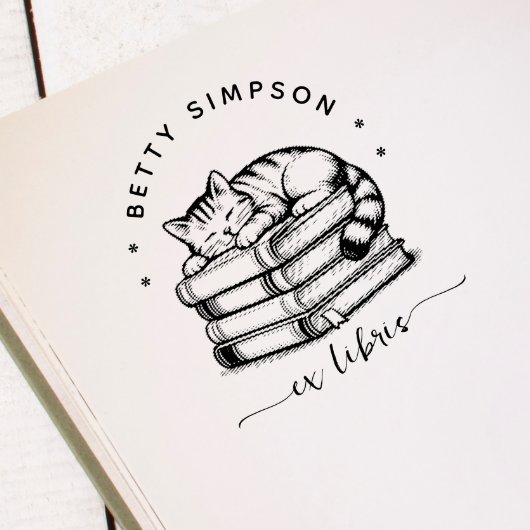 * * BETTY SIMPSON * *
ex libris